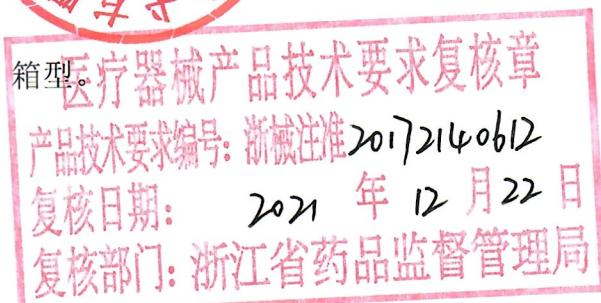 箱型。
医疗器械产品技术要求复核章
产品技术要求编号:浙械注准20172140612
复核日期: 2021 年 12 月 22 日
复核部门:浙江省药品监督管理局